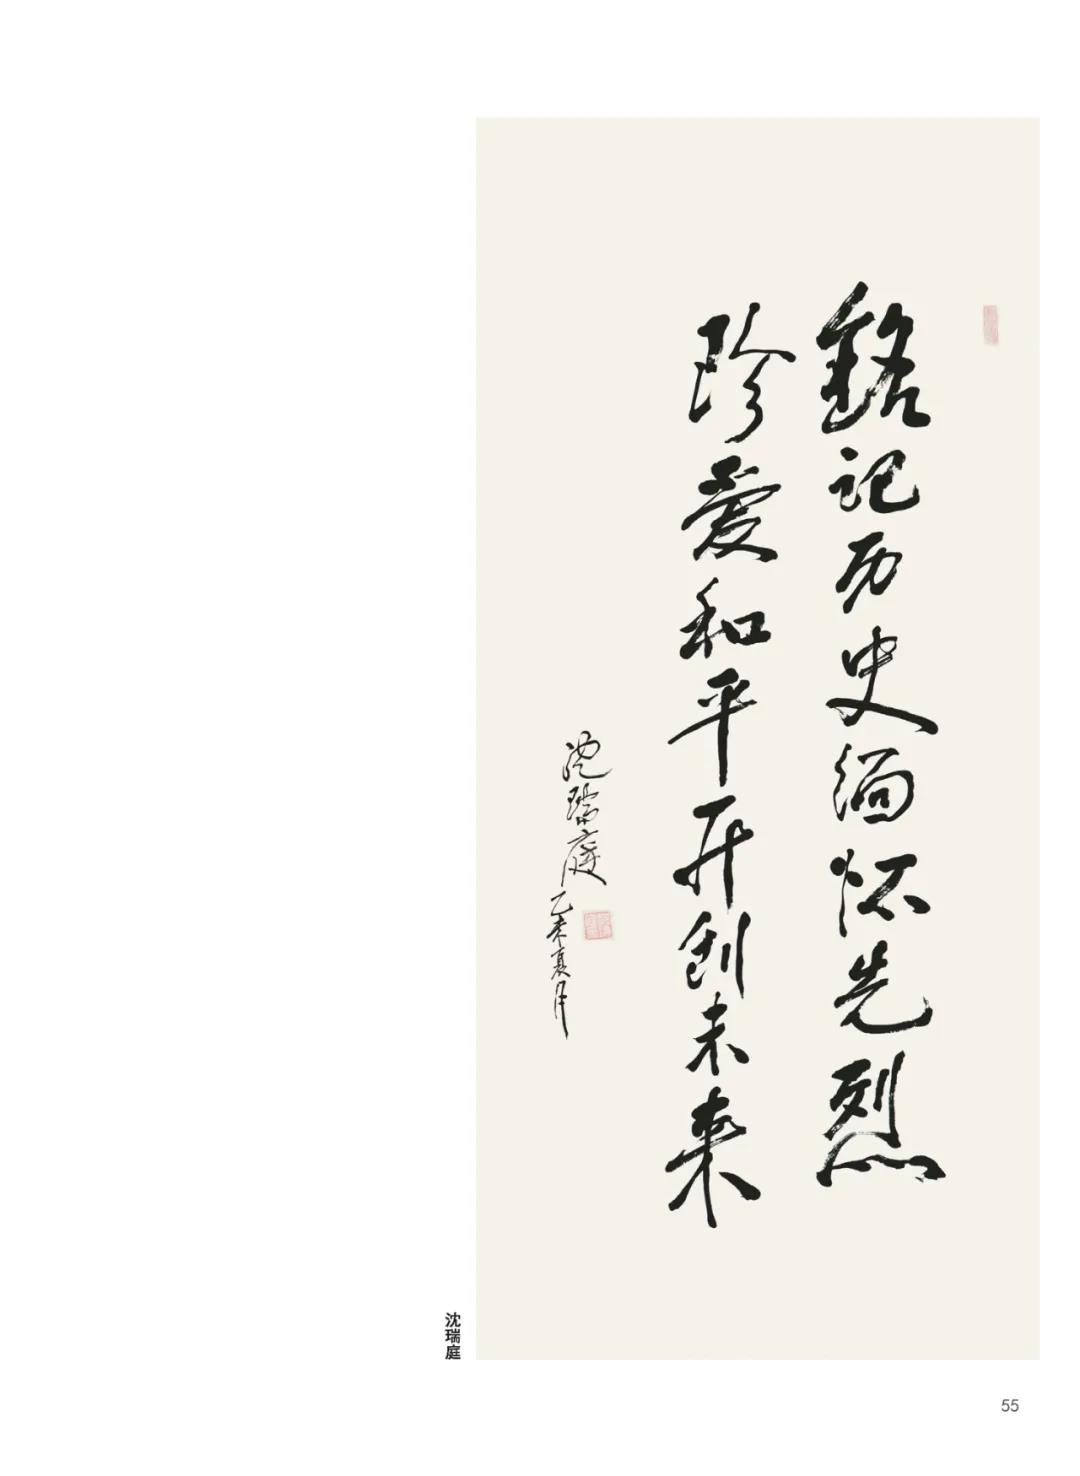 铭记历史缅怀先烈
珍爱和平开创未来
沈瑞庭
乙未夏月
沈瑞庭
55